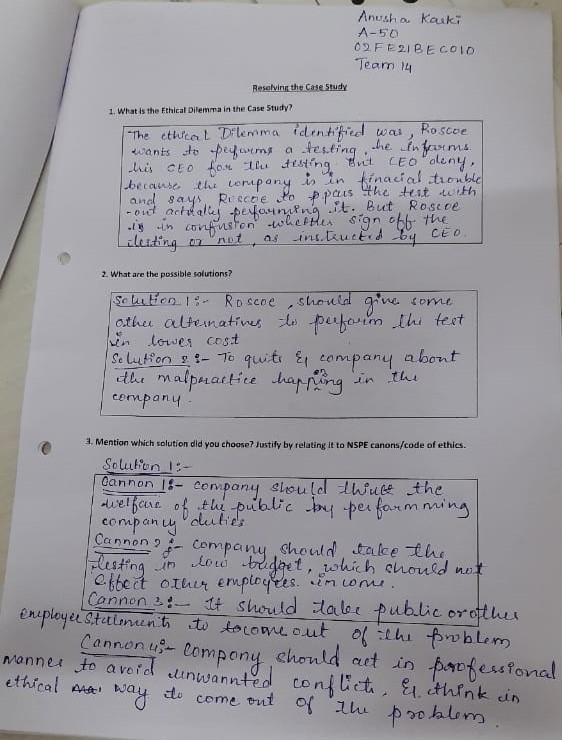 Anusha Karki
A-50
02FE21BEC010
Team 14
Resolving the Case Study
1. What is the Ethical Dilemma in the Case Study?
The ethical Dilemma identified was, Roscoe
wants to performs a testing, he informs
his CEO for the testing. But CEO deny,
because the company is in finacial trouble
and says Roscoe to ppass the test with
-out actually performing it. But Roscoe
is in confusion whether sign off the
testing or not, as instructed by CEO.
2. What are the possible solutions?
Solution 1:- Roscoe, should give some
other alternatives to perform the test
in lower cost
Solution 2:- To quite & company about
the malpractice happing in the
company.
3. Mention which solution did you choose? Justify by relating it to NSPE canons/code of ethics.
Solution 1:-
Cannon 1:- company should the
welfare of the public by performming
company duties
Cannon 2:- company should take the
testing in low budget, which should not
effect other employees income.
Cannon 3:- It should take public or other
employee Statements to come out of the problem
Cannon 4:- company should act in professional
manner to avoid unwannted conflict, & think in
ethical way to come out of the problem.